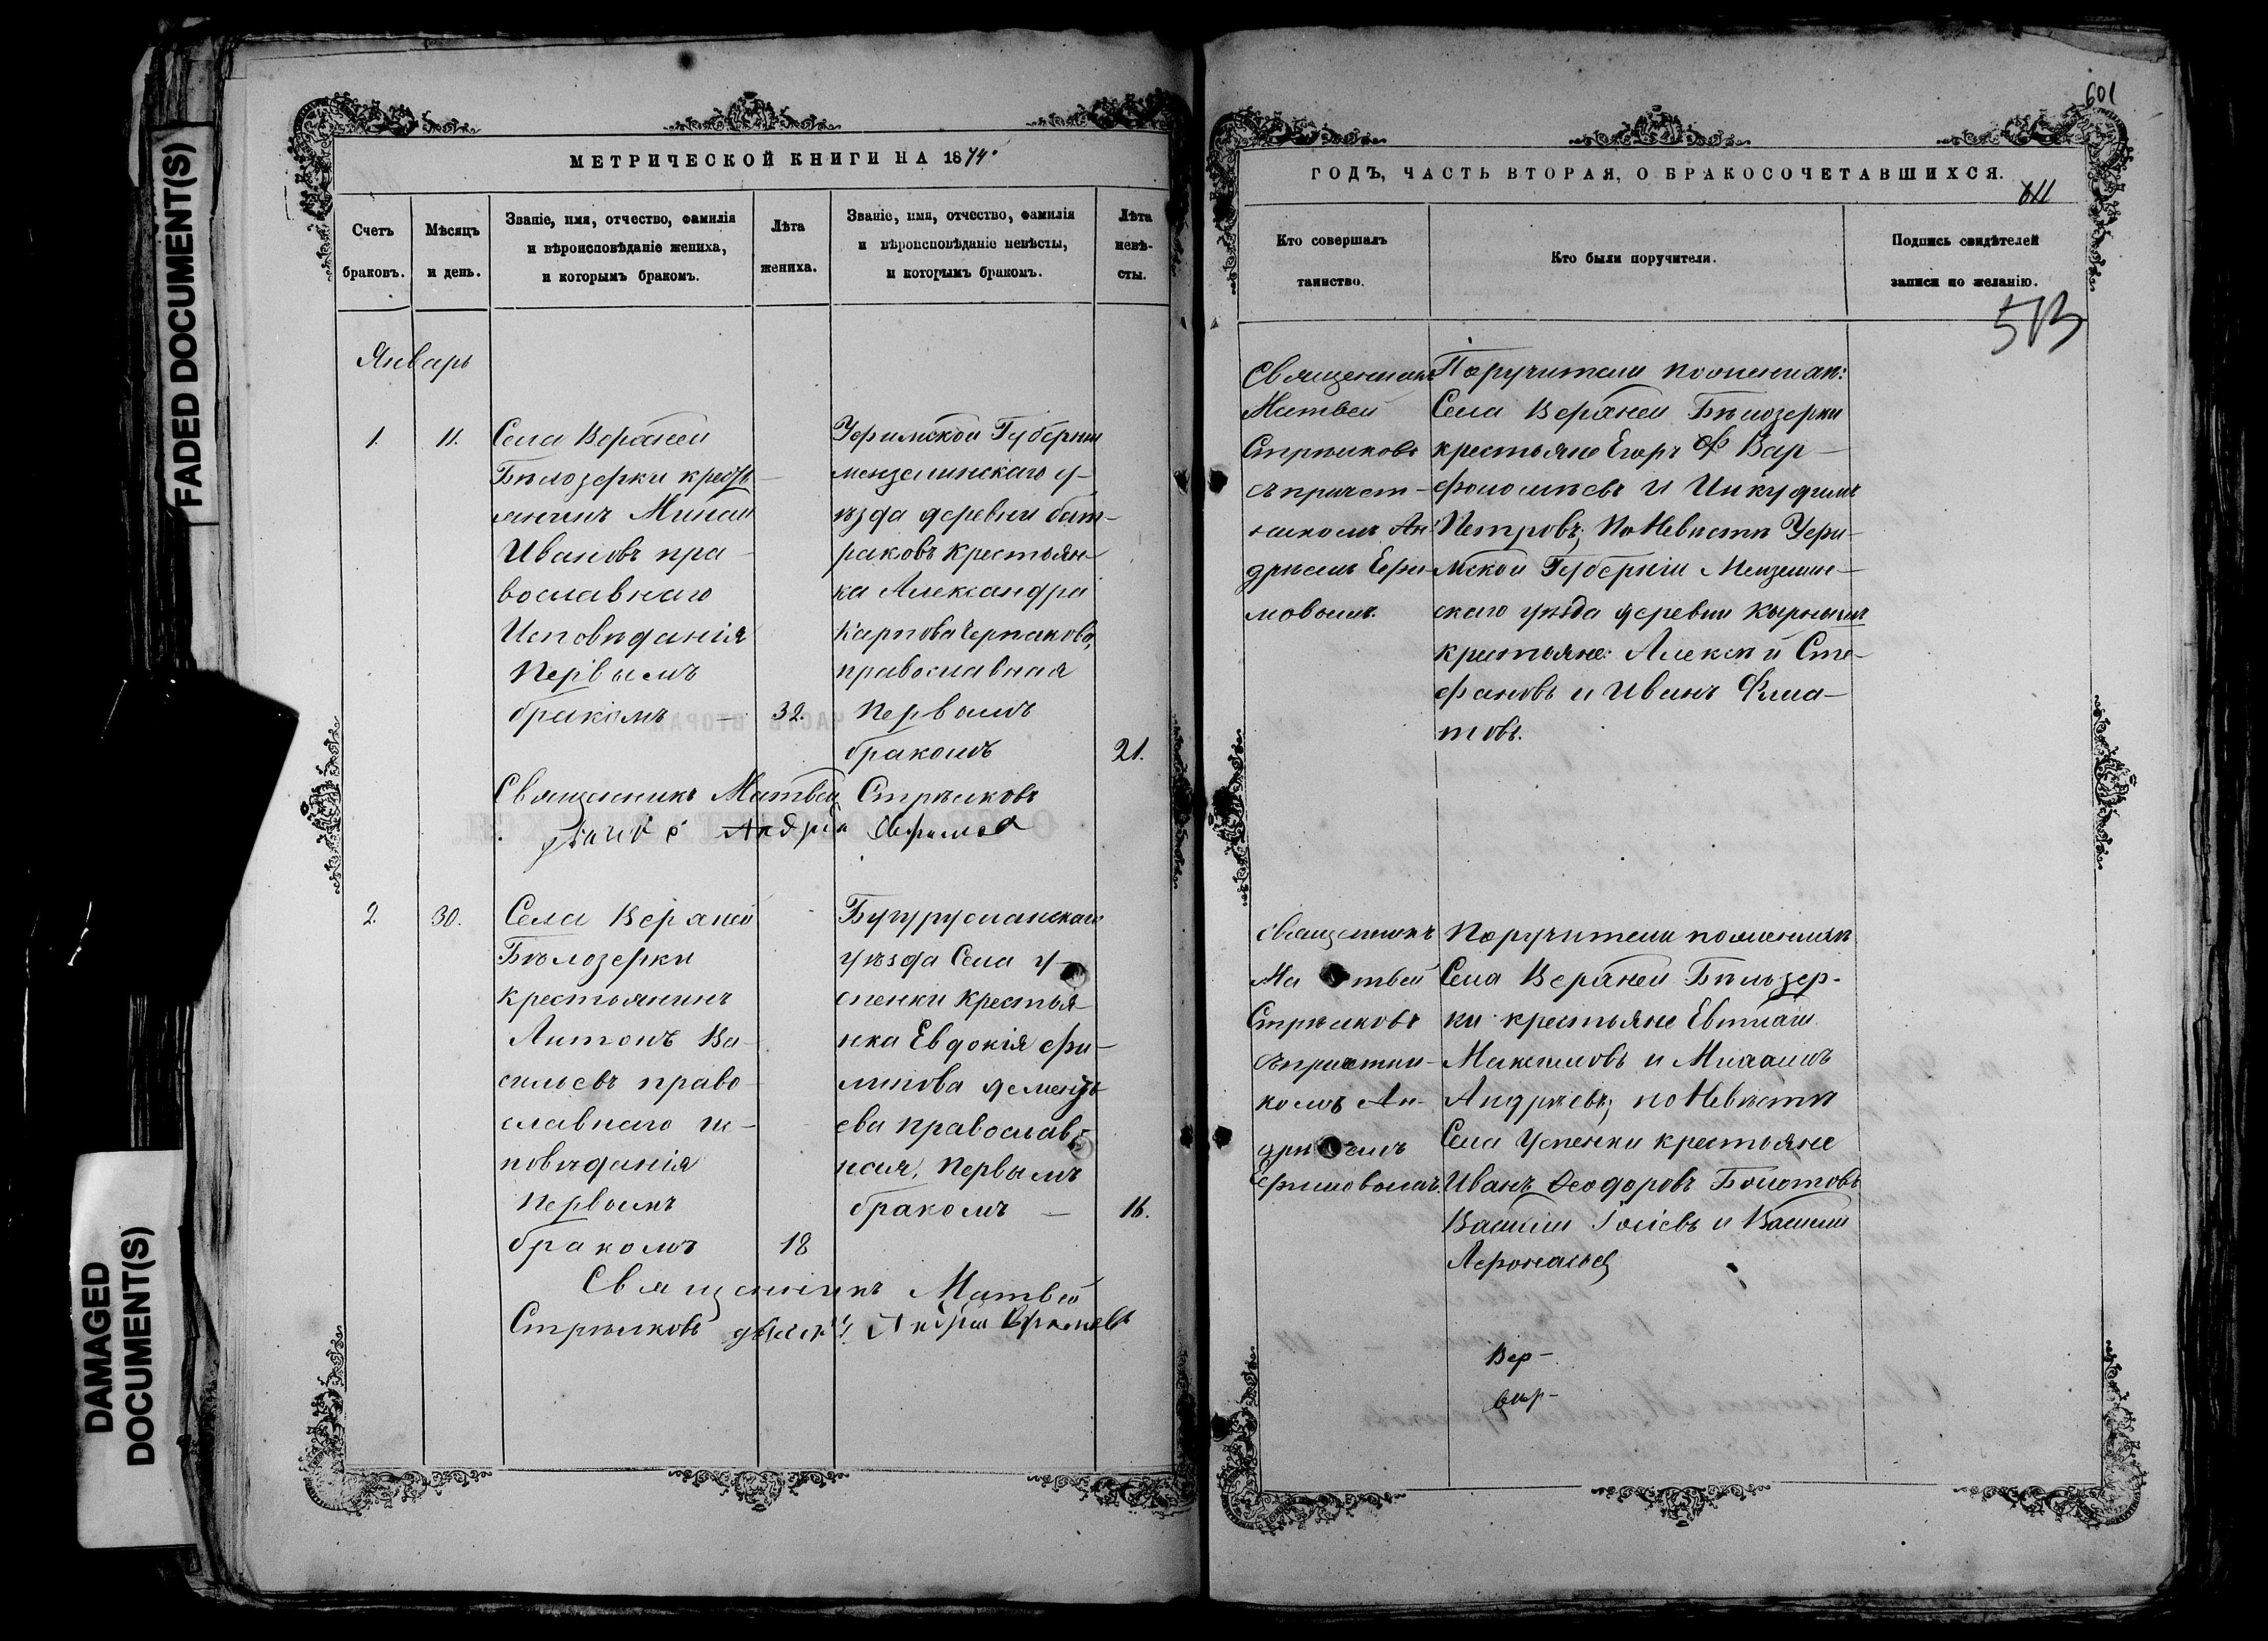 FADED DOCUMENT(S)
DAMAGED
DOCUMENT(S)
МЕТРИЧЕСКОЙ КНИГИ НА 1874.
Счетъ
браковъ.
Мѣсяцъ
и день.
Званіе, имя, отчество, фамилія
и вѣроисповѣданіе жениха,
и которымъ бракомъ.
Лѣта
жениха.
Званіе, имя, отчество, фамилія
и вѣроисповѣданіе невѣсты,
и которымъ бракомъ.
Лѣта
невѣ-
сты.
Январь
1.
11.
Села Верхней
Бѣлозерки кресть
янинъ Минай
Ивановъ пра-
вославнаго
Исповѣданія
Первымъ
бракомъ —
32.
Уфимской Губерніи
мензелинскаго у-
ѣзда деревни бат-
раковъ крестьян-
ка Александра
Карпова
православная
Первымъ
бракомъ
21.
Священникъ Матвей Стрѣлковъ
Андрей Ефимов
2.
30.
Села Верхней
Бѣлозерки
крестьянинъ
Антонъ Ва-
сильевъ право-
славнаго ис-
повѣданія
Первымъ
бракомъ
18
Бугурусланскаго
уѣзда Села У-
спенки крестья-
нка Евдокія Фи-
липова Дементь
ева православ-
ная, Первымъ
бракомъ —
16.
Священникъ Матвей
Стрѣлковъ Андрей Ефимовъ
601
ГОДЪ, ЧАСТЬ ВТОРАЯ, О БРАКОСОЧЕТАВШИХСЯ.
611
Кто совершалъ
таинство.
Кто были поручители.
Подпись свидѣтелей
записи по желанію.
513
Священникъ
Матвей
Стрѣлковъ
съ причет-
никомъ Ан-
дрѣемъ Ефи-
мовымъ.
Поручители по женихѣ:
Села Верхней Бѣлозерки
крестьяне Егоръ Ф Вар-
фоломѣевъ и Никудимъ
Петровъ; По Невѣстѣ Уфи-
мской Губерніи Мензелин-
скаго уѣзда деревни
крестьяне: Алексѣй Сте-
фановъ и Иванъ Фила-
товъ.
священникъ
Матвей
Стрѣлковъ
съ причетни-
комъ Ан-
дрѣемъ
Ефимовымъ.
Поручители по женихѣ
Села Верхней Бѣлозер-
ки крестьяне
Максимовъ и Михаилъ
Андрѣевъ; по Невѣстѣ
Села Успенки крестьяне
Иванъ Ѳеодоровъ Болотовъ
Василій и Василій
Афонасьев
Вер-